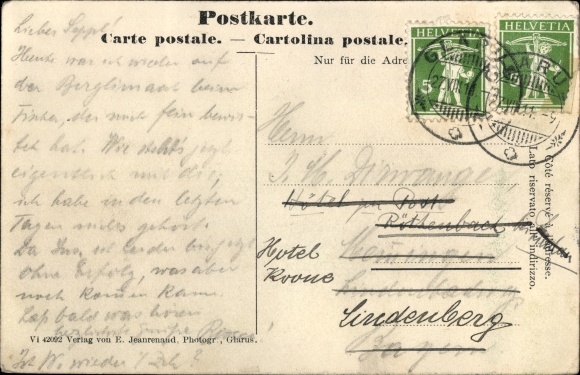 Postkarte.
Carte postale. — Cartolina postale.
Nur für die Adre
HELVETIA
HELVETIA
5
GLARUS
Côté réservé à l'adresse.
Lato riservato all'indirizzo.
Liebes Seppl!
Heute war ich wieder auf
der Berglimatt beim
Fischer, der noch fein
Wie steht's
eigentlich mit dir,
ich habe in den letzten
Tagen nichts gehört.
ist leider bis jetzt
ohne Erfolg, was aber
noch kommen kann.
Lass bald was hören
herzlichste Grüsse
Ist W. wieder
Herrn
Hôtel zur Post
Röthenbach
Hotel
Krone
Lindenberg
Bayern
Vi 42092 Verlag von E. Jeanrenaud, Photogr., Glarus.